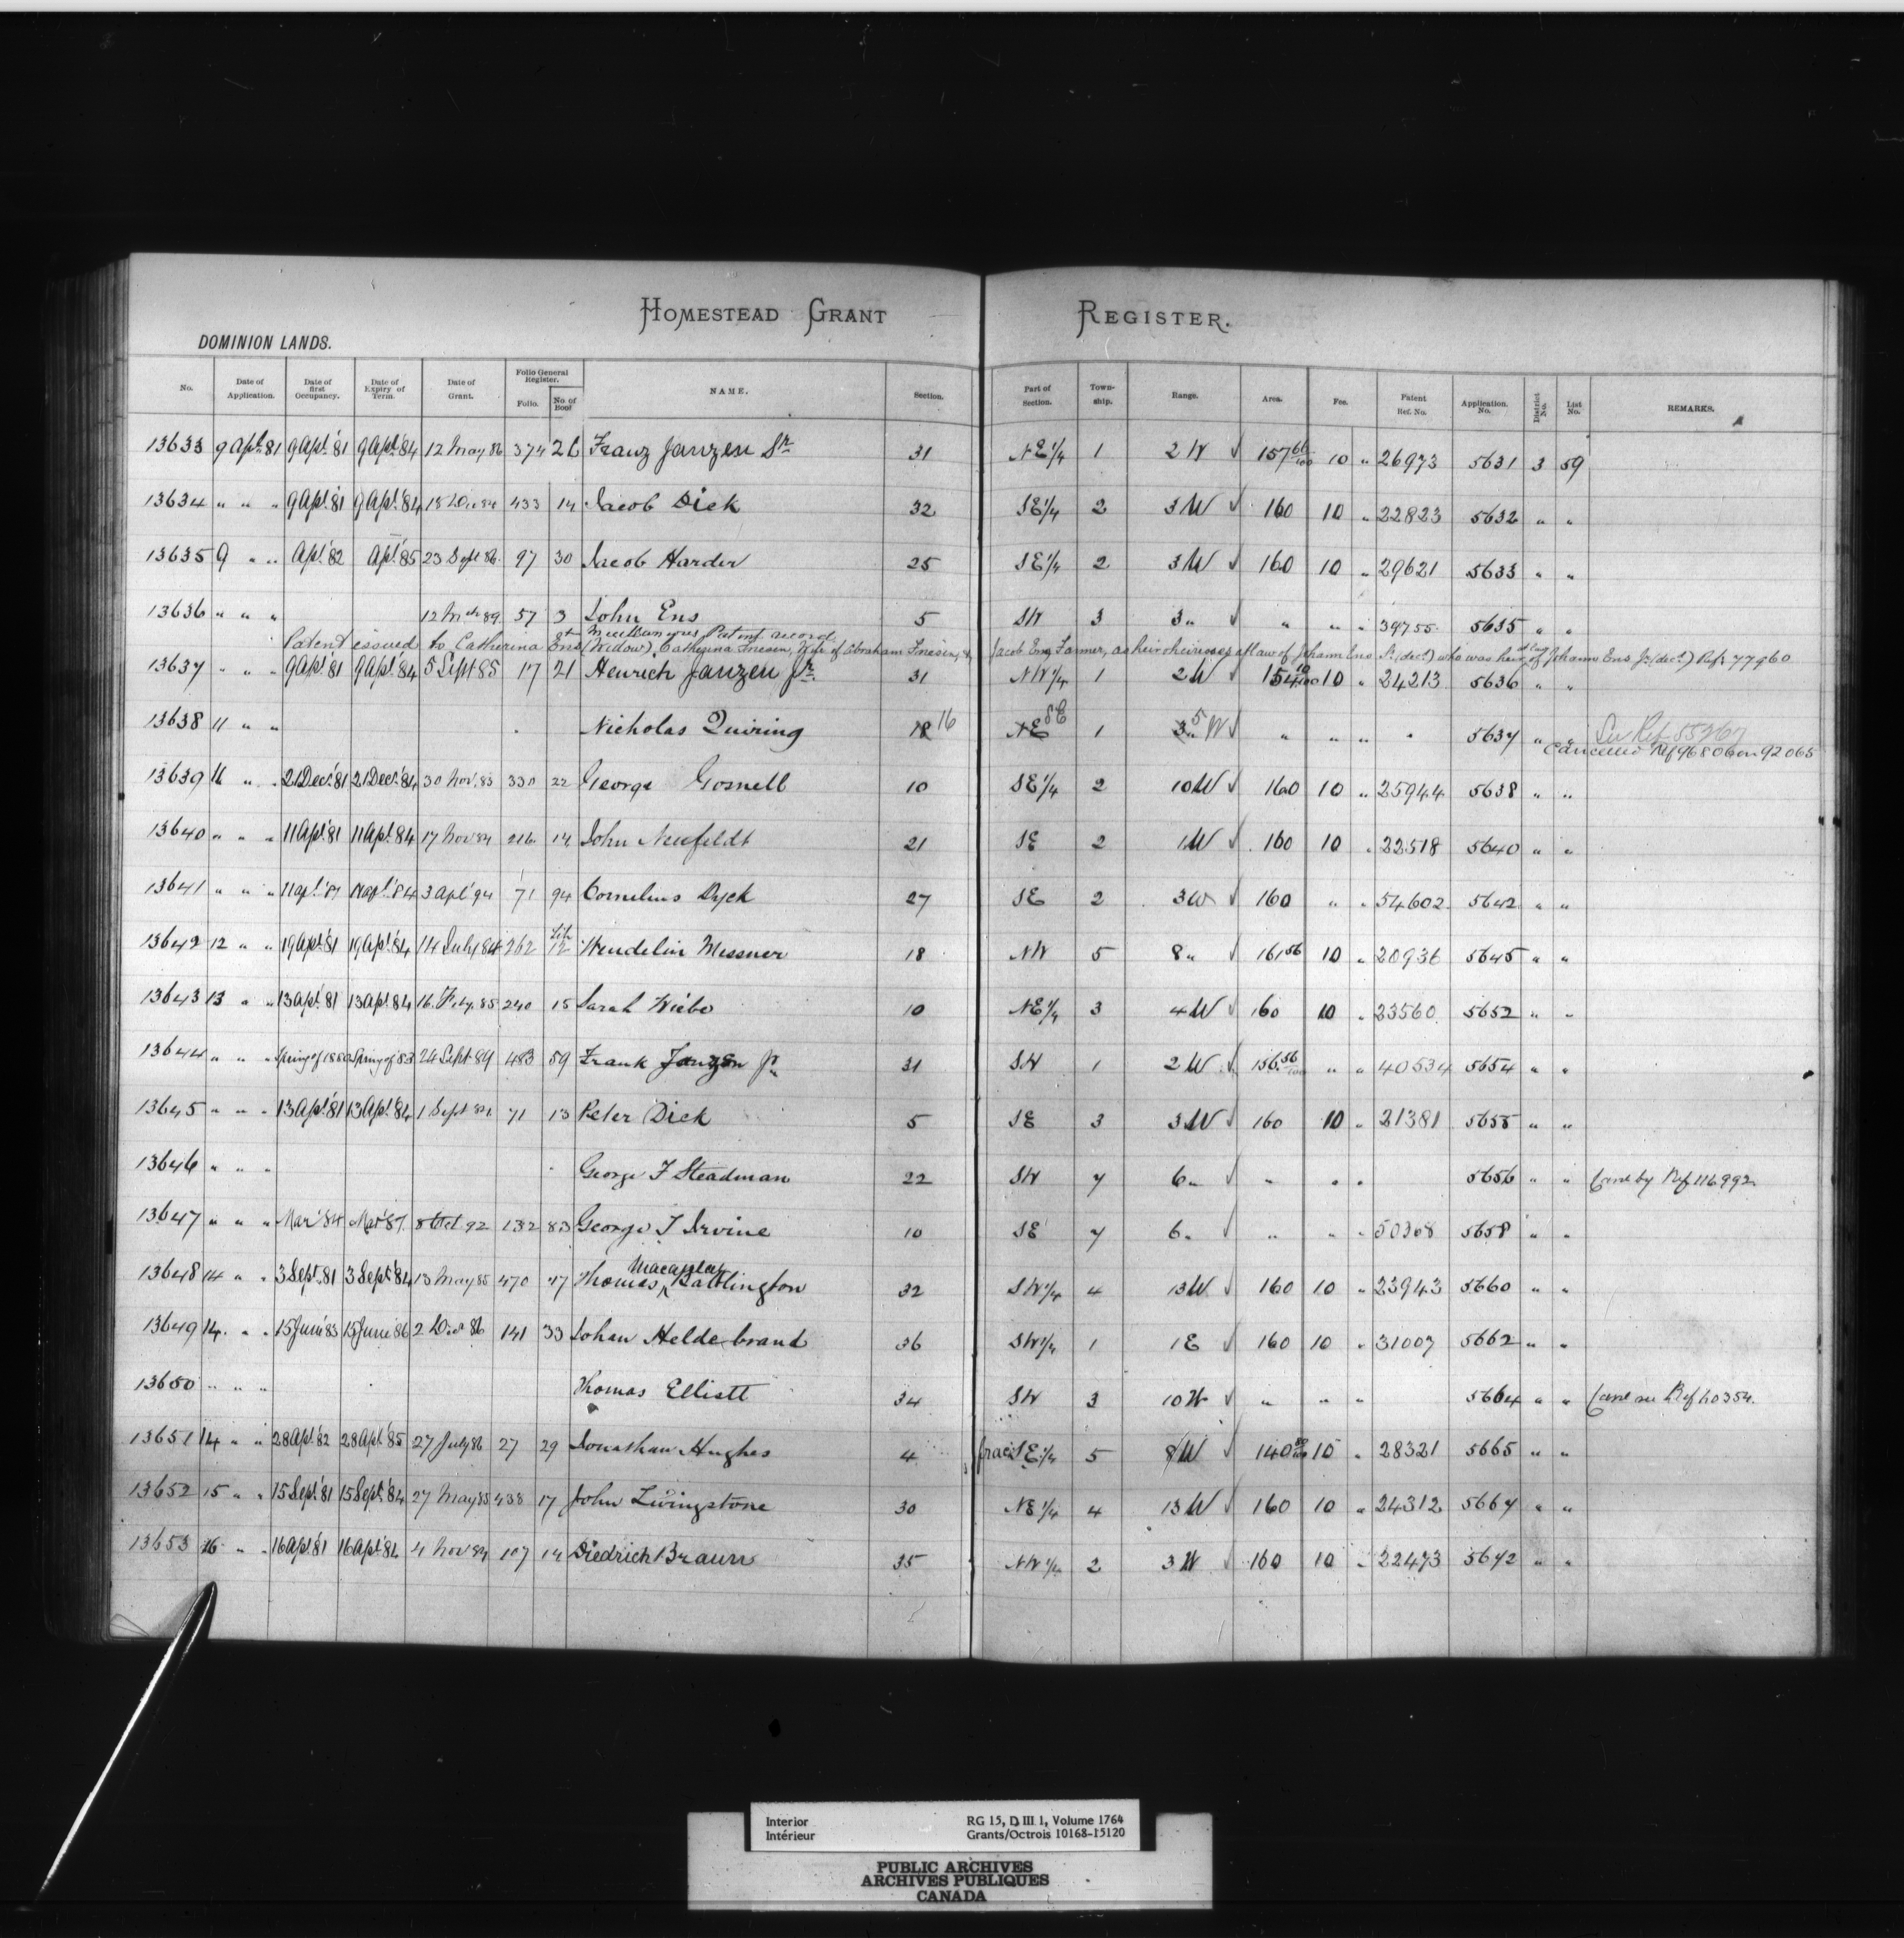 HOMESTEAD GRANT REGISTER.
DOMINION LANDS.
No. Date of Application. Date of first Occupancy. Date of Expiry of Term. Date of Grant. Folio General Register. Folio. No. of Book NAME. Section. Part of Section. Town-ship. Range. Area. Fee. Patent Ref. No. Application. No. District No. List No. REMARKS.
13633 9 Apl. 81 9 Apl. '81 9 Apl. '84 12 May 86 374 26 Franz Janzen Sr. 31 NE 1/4 1 2 W ✓ 157 60/100 10 " 26973 5631 3 59
13634 " " " 9 Apl. '81 9 Apl. '84 18 Dec 84 433 14 Jacob Dick 32 SE 1/4 2 3 W ✓ 160 10 " 22823 5632 " "
13635 9 " " Apl. '82 Apl. '85 23 Sept 86 97 30 Jacob Harder 25 SE 1/4 2 3 W ✓ 160 10 " 29621 5633 " "
13636 " " " 12 Mch 89 57 3 John Ens 5 SW 3 3 " ✓ " " " 39755 5635 " "
Patent issued to Catherina Ens (Widow), Catherina Friesen, Wife of Abraham Friesen, & Jacob Ens, Farmer, as heir & heiresses at law of Johann Ens Sr. (decd.) who was heir at law of Johann Ens Jr. (decd.) Ref. 77960
13637 " " " 9 Apl. '81 9 Apl. '84 5 Sept 85 17 21 Henrich Janzen Jr. 31 NW 1/4 1 2 W 154 10/100 10 " 24213 5636 " "
13638 11 " " Nicholas Quiring 18 16 NE SE 1 3 " 5 W ✓ " " " " 5637 " " See Ref 55267
Cancelled Ref 96806 on 92065
13639 16 " " 21 Dec. '81 21 Dec. '84 30 Nov. 85 330 22 George Gosnell 10 SE 1/4 2 10 W ✓ 160 10 " 25944 5638 " "
13640 " " " 11 Apl. '81 11 Apl. '84 17 Nov 84 216 14 John Neufeldt 21 SE 2 1 W ✓ 160 10 " 22518 5640 " "
13641 " " " 11 Apl. '81 11 Apl. '84 3 Apl '94 71 94 Cornelius Dyck 27 SE 2 3 W ✓ 160 " " 54602 5642 " "
13642 12 " " 19 Apl. '81 19 Apl. '84 14 July 84 262 12 Wendelin Messner 18 NW 5 8 " ✓ 161 56 10 " 20936 5645 " "
13643 13 " " 13 Apl. '81 13 Apl. 84 16 Feby. 85 240 15 Sarah Wiebe 10 NE 1/4 3 4 W ✓ 160 10 " 23560 5652 " "
13644 " " " Spring of 1880 Spring of 83 24 Sept 89 483 59 Frank Janzen Jr 31 SW 1 2 W ✓ 156 56/100 " " 40534 5654 " "
13645 " " " 13 Apl. '81 13 Apl. '84 1 Sept 84 71 13 Peter Dick 5 SE 3 3 W ✓ 160 10 " 21381 5655 " "
13646 " " " George F Steadman 22 SW 7 6 " ✓ " " " 5656 " " Canc by Ref 116992
13647 " " " Mar '84 Mar '87 8 Oct 92 132 83 George T Irvine 10 SE 7 6 " ✓ " " " 50368 5658 " "
13648 14 " " 3 Sept. 81 3 Sept. '84 13 May 85 470 17 Thomas Macaulay Battington 32 SW 1/4 4 13 W ✓ 160 10 " 23943 5660 " "
13649 14 " " 15 June '83 15 June '86 2 Dec 86 141 33 Johan Heldebrand 36 SW 1/4 1 1 E ✓ 160 10 " 31007 5662 " "
13650 " " " Thomas Elliott 34 SW 3 10 W ✓ " " " 5664 " " Canc on Ref 40354.
13651 14 " " 28 Apl. '82 28 Apl. '85 27 July 86 27 29 Jonathan Hughes 4 frac SE 1/4 5 8 W ✓ 140 80/100 10 " 28321 5665 " "
13652 15 " " 15 Sept. '81 15 Sept. '84 27 May 85 438 17 John Livingstone 30 NE 1/4 4 13 W ✓ 160 10 " 24312 5667 " "
13653 16 " " 16 Apl. 81 16 Apl. 84 4 Nov 84 107 14 Diedrich Braun 35 NW 1/4 2 3 W ✓ 160 10 " 22473 5672 " "
Interior RG 15, D III 1, Volume 1764
Intérieur Grants/Octrois 10168-15120
PUBLIC ARCHIVES
ARCHIVES PUBLIQUES
CANADA